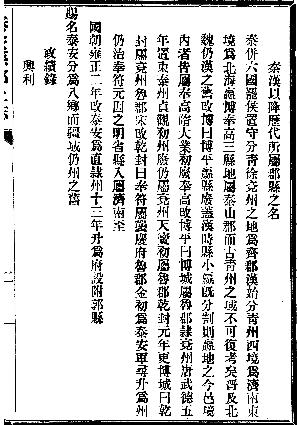 秦漢以降歷代所屬郡縣之名
秦併六國罷侯置守分青徐兗州之地爲齊郡漢始分青州西境爲濟南東
境爲北海嬴博奉高三縣地屬泰山郡而古青州之域不可復考矣晉及北
魏仍漢之舊改博曰博平嬴縣廢蓋漢時縣小嬴既分割則嬴地之今邑境
內者皆屬奉高隋大業初廢奉高改博平曰博城屬魯郡隸兗州唐武德五
年置東泰州貞觀初廢州仍屬兗州天寶初屬魯郡乾封元年更博城曰乾
封屬兗州魯郡宋改乾封曰奉符屬襲慶府魯郡金初爲泰安軍尋升爲州
仍治奉符元因之明省縣入屬濟南至
國朝雍正二年改泰安爲直隸州十三年升爲府設附郭縣
賜名泰安分爲八鄉而疆域仍州之舊
政績錄
興利